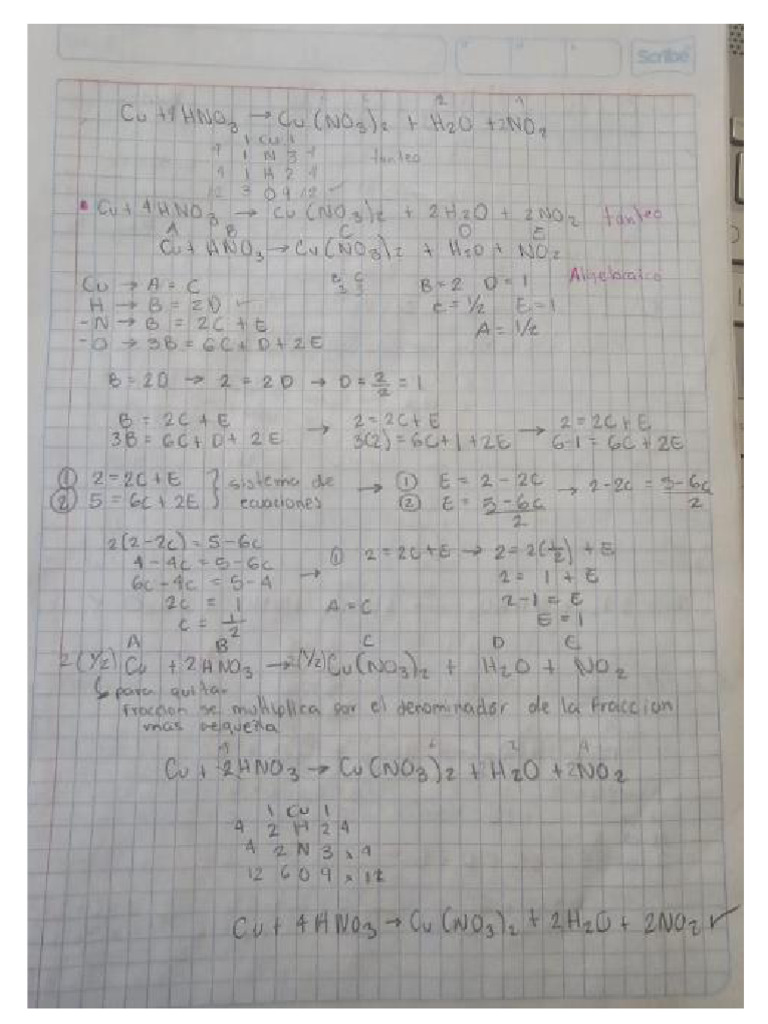 Scribe
Cu + 4HNO3 → Cu(NO3)2 + H2O + 2NO2
1 Cu 1
4 1 N 3 4
4 1 H 2 4
12 3 O 9 12
tanteo
• Cu + 4HNO3 → Cu(NO3)2 + 2H2O + 2NO2 tanteo
A B C D E
Cu + HNO3 → Cu(NO3)2 + H2O + NO2
Algebraico
Cu → A = C
H → B = 2D
-N → B = 2C + E
-O → 3B = 6C + D + 2E
B = 2 D = 1
C = 1/2 E = 1
A = 1/2
B = 2D → 2 = 2D → D = 2/2 = 1
B = 2C + E → 2 = 2C + E → 2 = 2C + E
3B = 6C + D + 2E 3(2) = 6C + 1 + 2E 6-1 = 6C + 2E
① 2 = 2C + E } sistema de → ① E = 2 - 2C → 2-2C = 5-6C/2
② 5 = 6C + 2E } ecuaciones ② E = 5-6C/2
2(2-2C) = 5-6C
4-4C = 5-6C
6C-4C = 5-4
2C = 1
C = 1/2
→ ① 2 = 2C + E → 2 = 2(1/2) + E
2 = 1 + E
2-1 = E
E = 1
A = C
A B C D E
2(1/2)Cu + 2HNO3 → 2(1/2)Cu(NO3)2 + H2O + NO2
↳ para quitar
fraccion se multiplica por el denominador de la fraccion
mas pequeña
Cu + 2HNO3 → Cu(NO3)2 + H2O + 2NO2
1 Cu 1
4 2 H 2 4
4 2 N 3 x 4
12 6 O 9 x 12
Cu + 4HNO3 → Cu(NO3)2 + 2H2O + 2NO2 ✓